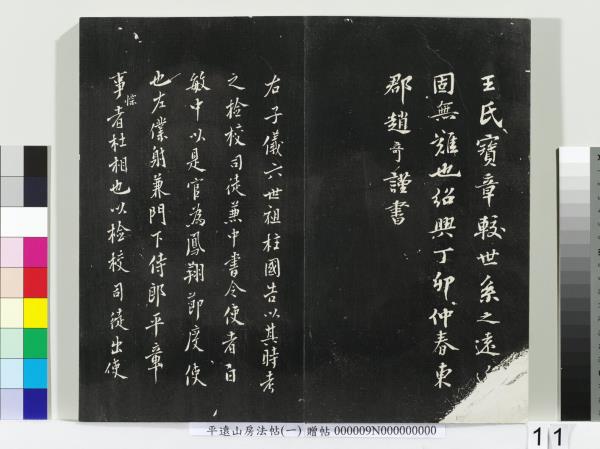 王氏寶章較世系之遠近
固無難也紹興丁卯仲春東
郡趙奇謹書
右子儀六世祖柱國告以其時考
之檢校司徒兼中書令使者白
敏中以是官為鳳翔節度使
也左僕射兼門下侍郎平章
事悰者杜相也以檢校司徒出使
平遠山房法帖(一) 贈帖 000009N000000000
11